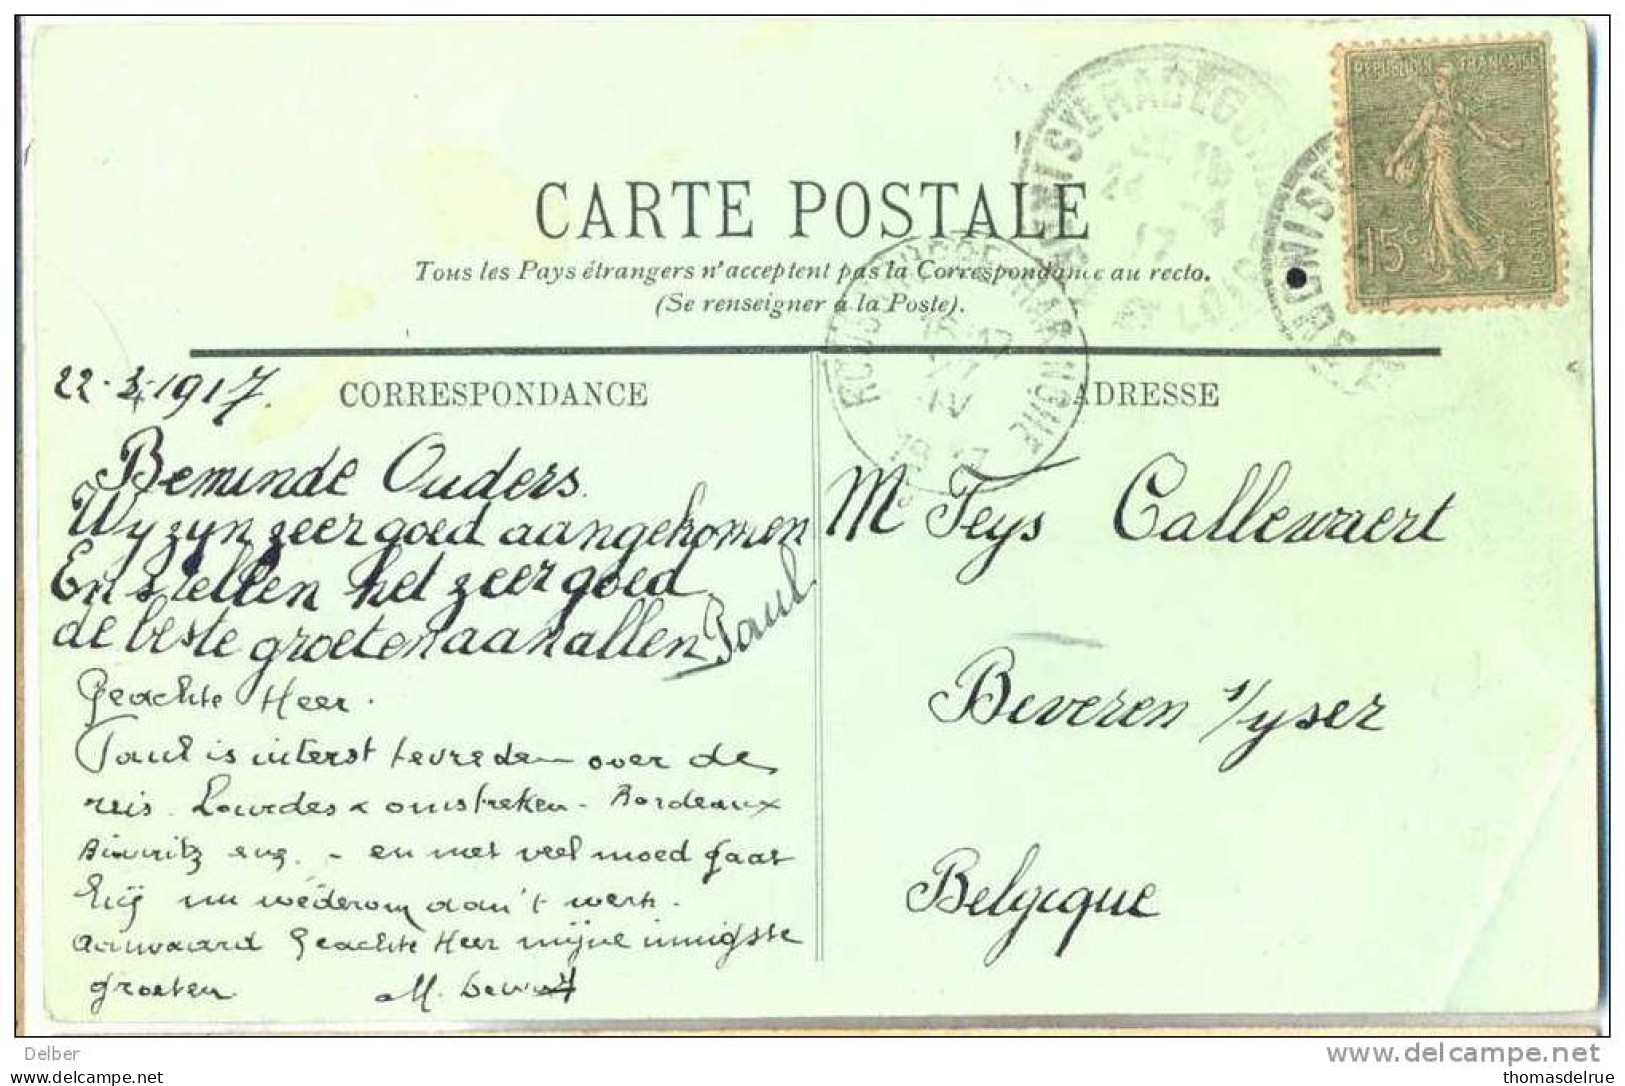 RÉPUBLIQUE FRANÇAISE
15c
POSTES
CARTE POSTALE
Tous les Pays étrangers n'acceptent pas la Correspondance au recto.
(Se renseigner à la Poste).
22.4.1917.
CORRESPONDANCE
Beminde Ouders.
Wy zyn zeer goed aangekomen
En stellen het zeer goed
de beste groeten aan allen Paul
Geachte Heer.
Paul is uiterst tevreden over de
reis. Lourdes & omstreken - Bordeaux
Biarritz enz. - en met veel moed gaat
hij nu wederom aan 't werk.
Aanvaard Geachte Heer mijne innigste
groeten M.
ADRESSE
Mr Feys Callewaert
Beveren s/yser
Belgique
Delber
copyright by
www.delcampe.net
thomasdelrue